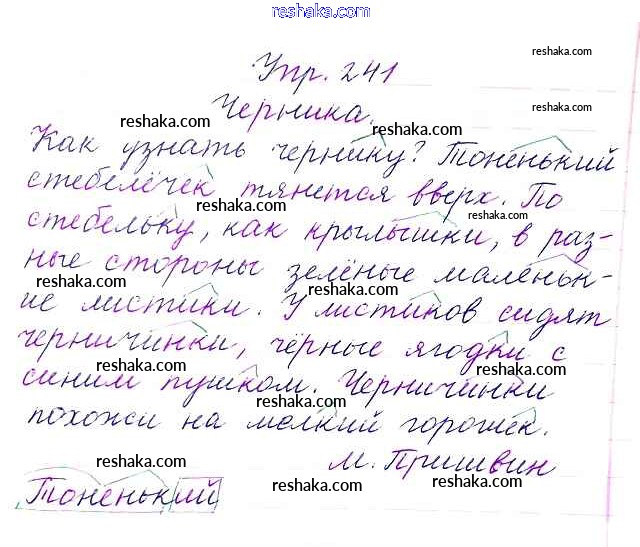 reshaka.com
Упр. 241
reshaka.com
Черника.
reshaka.com
reshaka.com
Как узнать чернику? Тоненький
reshaka.com
стебелёчек тянется вверх. По
reshaka.com
reshaka.com
стебельку, как крылышки, в раз-
ные стороны зелёные маленьк-
reshaka.com
reshaka.com
ие листики. У листиков сидят
черничинки, чёрные ягодки с
reshaka.com
reshaka.com
синим пушком. Черничинки
reshaka.com
reshaka.com
похожи на мелкий горошек.
reshaka.com
М. Пришвин
reshaka.com
reshaka.com
Тоненький